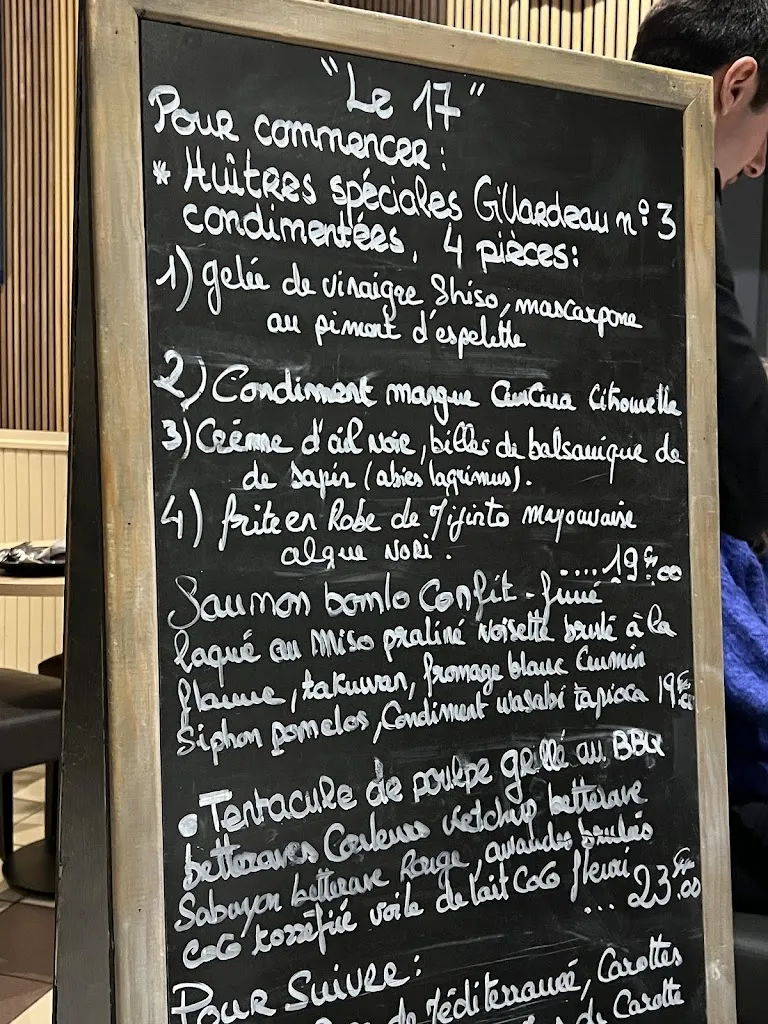 "Le 17"
Pour commencer :
* Huîtres spéciales Gillardeau n° 3
condimentées, 4 pièces :
1) gelée de vinaigre Shiso, mascarpone
au piment d'espelette
2) Condiment mangue CurCuma Citronnelle
3) Crème d'ail noir, billes de balsamique de
de sapin (abies lagrimus).
4) frite en Robe de mayonnaise
algue NORI .
.... 19 €.00
Saumon bomlo Confit - fumé
laqué au Miso praliné Noisette brulé à la
flamme, takuwan, fromage blanc Cumin
Siphon pomelos, Condiment wasabi tapioca 19 €
• Tentacule de poulpe grillé au BBQ
betteraves Couleurs ketchup betterave
Sabayon betterave Rouge, amandes brulées
CoCo torréfiée voile de lait CoCo fleuri
... 23 €.00
Pour Suivre :
de Méditerranée, Carottes
de Carotte